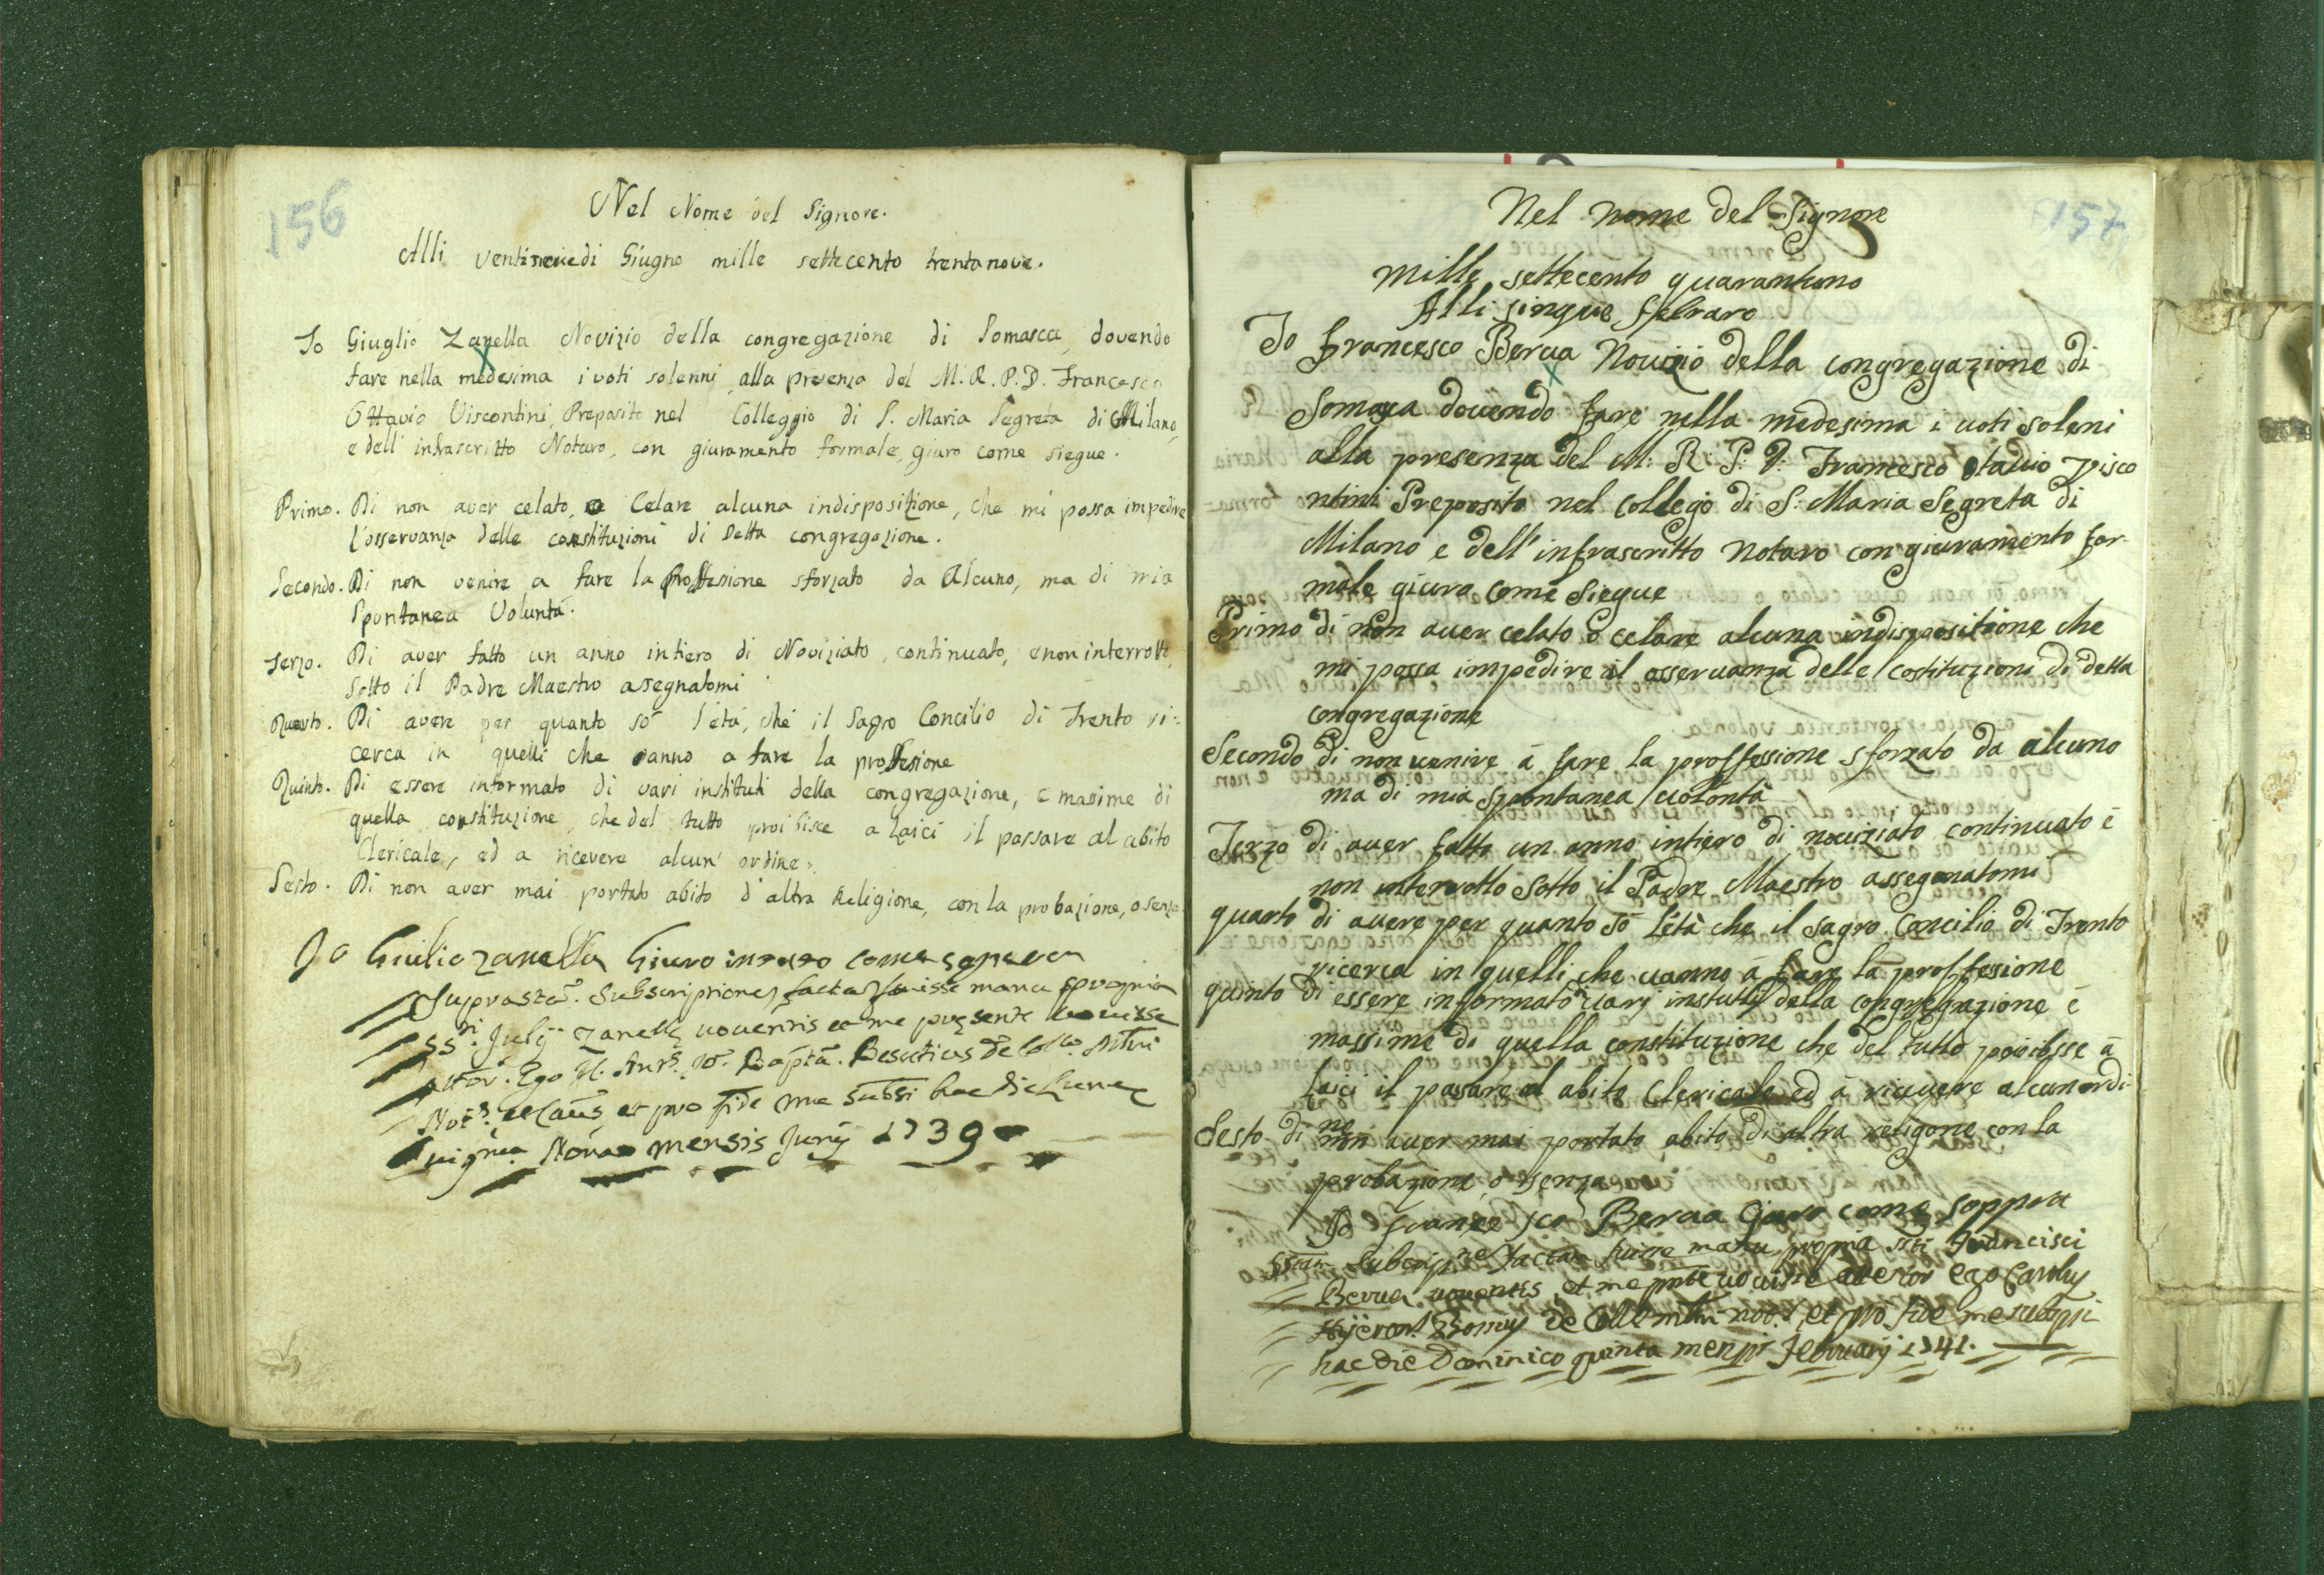 156
Nel Nome del Signore.
Alli ventinove di Giugno mille settecento trentanove.
Io Giuglio Zanella Novizio della congregazione di Somasca, dovendo
fare nella medesima i voti solenni alla presenza del M. R. P. D. Francesco
Ottavio Viscontini, Preposito nel Colleggio di S. Maria Segreta di Milano,
e dell' infrascritto Notaro, con giuramento formale, giuro come siegue.
Primo. Di non aver celato, o Celare alcuna indisposizione, che mi possa impedire
l'osservanza delle constituzioni di Detta congregazione.
Secondo. Di non venire a fare la proffesione sforzato da Alcuno, ma di mia
Spontanea Voluntà.
Terzo. Di aver fatto un anno intiero di Noviziato, continuato, e non interrotto,
Sotto il Padre Maestro assegnatomi
Quarto. Di avere per quanto sò l'età, che il Sagro Concilio di Trento ri=
cerca in quelli che vanno a fare la proffesione
Quinto. Di essere informato di vari instituti della congregazione, e masime di
quella constituzione, che del tutto proibisce a Laici il passare al abito
Clericale, ed a ricevere alcun' ordine.
Sesto. Di non aver mai portato abito d'altra Religione, con la probazione, o senza
Io Giulio Zanella Giuro come sopra
Suprasta. Subscriptione facta fuisse manu propria
SSti. Julij Zanella voventis et me presente vovisse
attor. Ego Bapta. Besutius de Collo.
et pro fide me subssi hac die Lunae
Nona mensis Junij 1739
157
Nel nome del Signore
mille settecento quarantuno
Alli sinque febraro
Io francesco Berua Novizio della congregazione di
Somasca dovendo fare nella medesima i voti soleni
alla presenza del M: R: P: D: Francesco otavio Visco
ntini Preposito nel Collegio di S. Maria Segreta di
Milano e dell' infrascritto notaro con giuramento for-
male giuro come siegue
Primo di non aver celato o celare alcuna indispositione che
mi possa impedire il osservanza delle costituzioni di detta
congregazione
Secondo di non venire à fare la proffessione sforzato da alcuno
ma di mia spontanea volontà
Terzo di aver fatto un anno intiero di noviziato continuato è
non interrotto sotto il Padre Maestro assegnatomi
quarto di avere per quanto sò l'età che il sagro Concilio di Trento
ricerca in quelli che vanno à fare la proffesione
quinto di essere informato varj instituti della congregazione è
massime di quella constituzione che del tutto proibisse à
Laici il pasare al abito Clericale ed à ricevere alcun ordi
ne
Sesto di non aver mai portato abito di altra religone con la
probazione o senza
Io france sco Berua Giuro come soppra
factam fuisse manu propria ssti Francisci
Berua voventis, et me pnte vovisse attestor ego Carolus
de Colle not. et pro fide me subscripsi
hac die Dominico quinta mensis Februarij 1741.